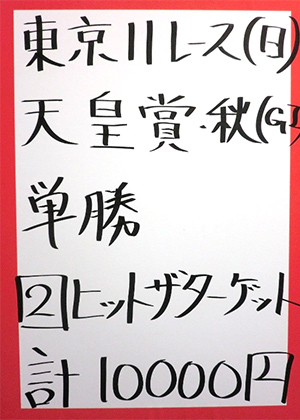 東京11レース(日)
天皇賞・秋(GI)
単勝
2ヒットザターゲット
計10000円